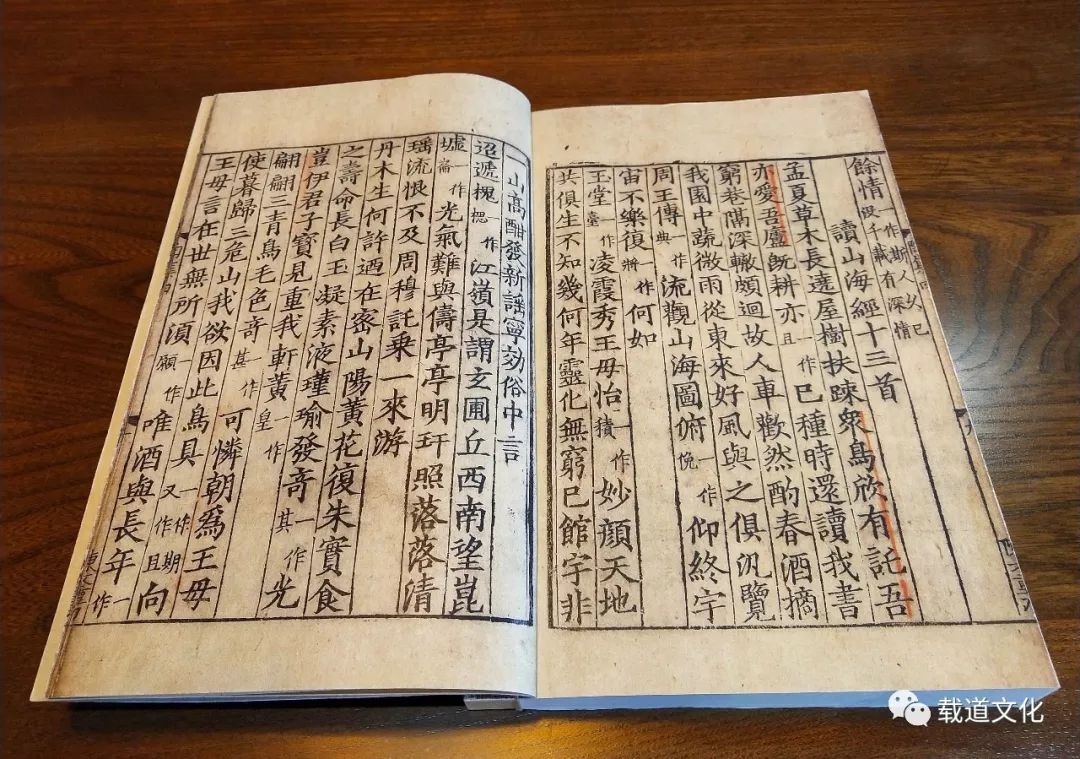 餘情一作斯人久已沒千載有深情
讀山海經十三首
孟夏草木長遶屋樹扶踈衆鳥欣有託吾
亦愛吾廬旣耕亦一作且已種時還讀我書
窮巷隔深轍頗迴故人車歡然酌春酒摘
我園中蔬微雨從東來好風與之俱汎覽
周王傳一作典流觀山海圖俯一作俛仰終宇
宙不樂復一作將何如
玉堂一作臺凌霞秀王母怡一作積妙顏天地
共俱生不知幾何年靈化無窮已館宇非
一山高酣發新謡寧効俗中言
迢遞槐一作江嶺是謂玄圃丘西南望崑
墟一作崙光氣難與儔亭亭明玕照落落清
瑶流恨不及周穆託乗一來游
丹木生何許迺在密山陽黃花復朱實食
之壽命長白玉凝素液瑾瑜發竒一作其光
豈伊君子寶見重我軒黃一作皇
翩翩三青鳥毛色竒一作甚可憐朝爲王母
使暮歸三危山我欲因此鳥具一作期又作且向
王母言在世無所湏一作願唯酒與長年一作
载道文化